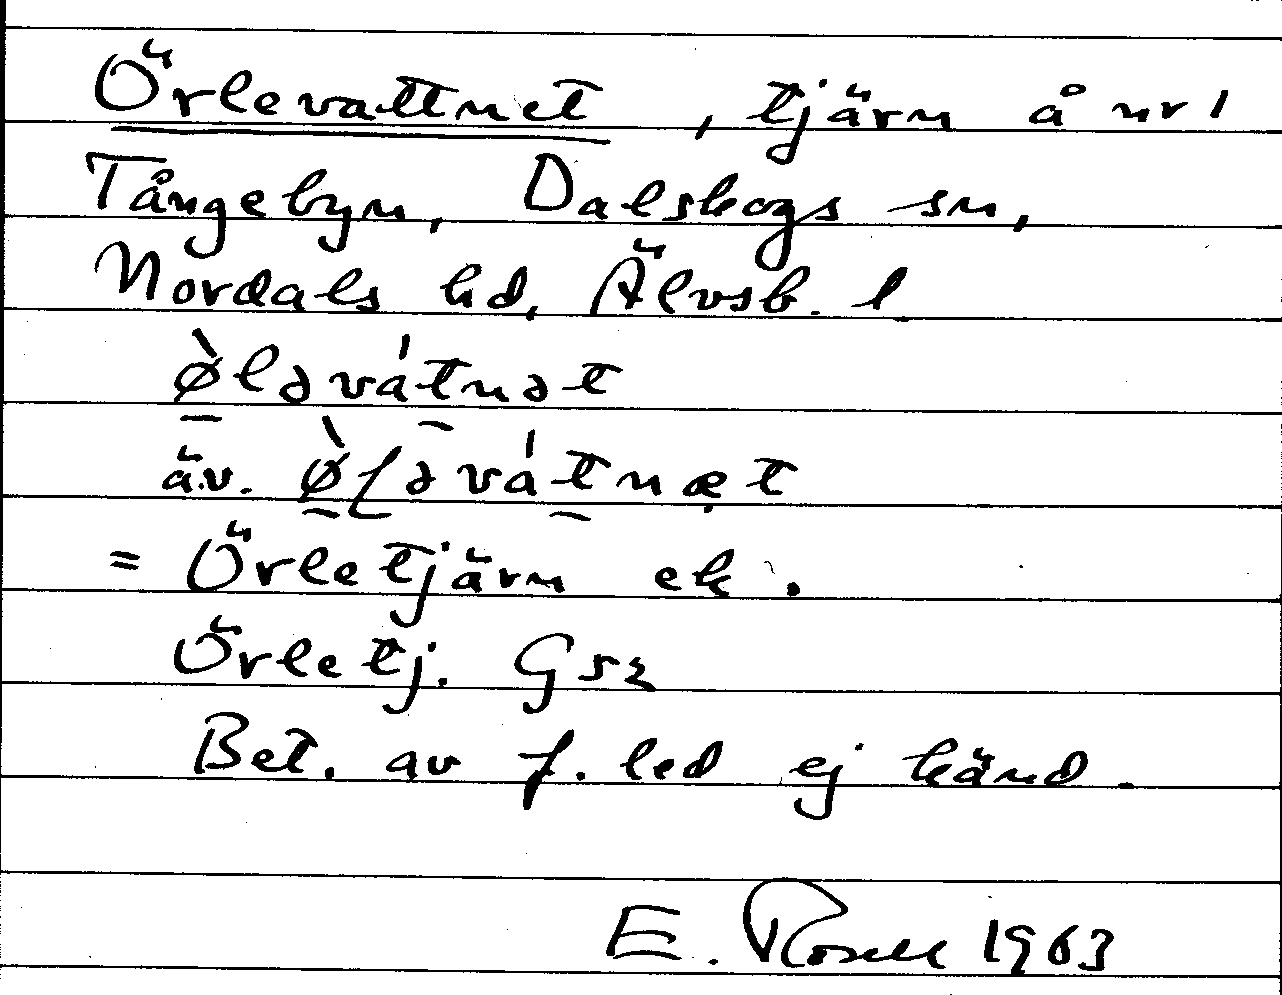 Örlevattnet, tjärn å nr 1
Tångebyn, Dalskogs sn,
Nordals hd, Älvsb. l.
ø̀ləvátnət
äv. ø̀ɭəvátnæt
= Örletjärn ek.
Örletj. G52
Bet. av f. led ej känd.
E. Rosell 1963